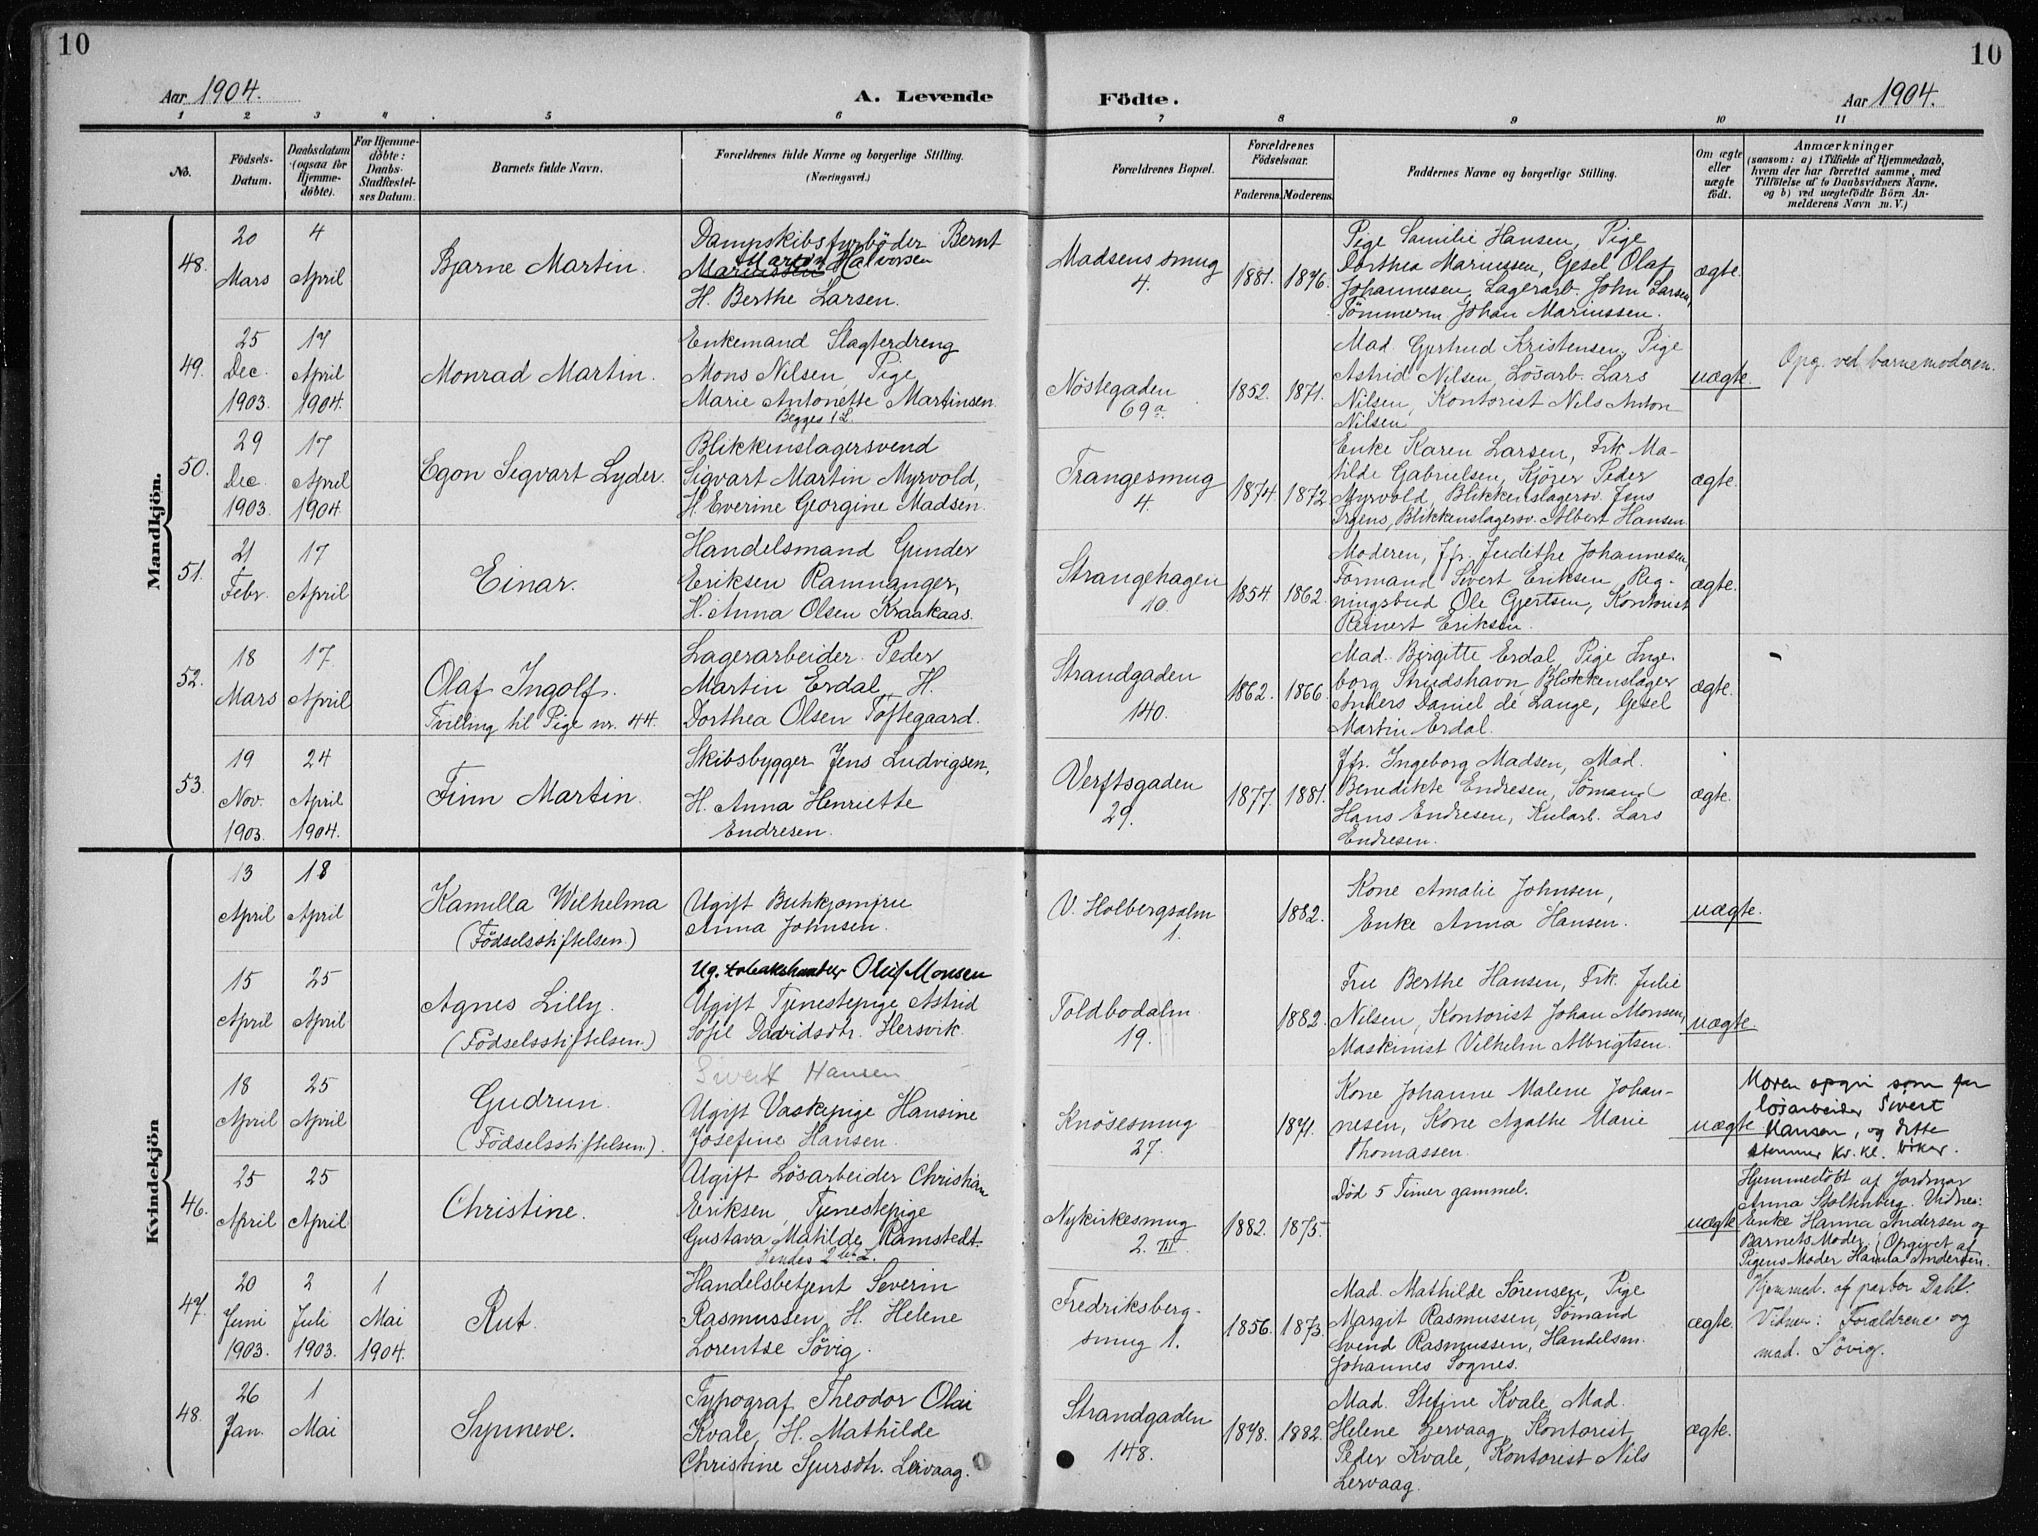 10
10
Aar 1904.
A. Levende
Födte.
Aar 1904.
1 2 3 4 5 6 7 8 9 10 11
No.
Födsels-
Datum.
Daabsdatum
(ogsaa for
Hjemme-
døbte).
For Hjemme-
døbte:
Daabs-
Stadfæstel-
ses Datum.
Barnets fulde Navn.
Forældrenes fulde Navne og borgerlige Stilling.
(Næringsvei.)
Forældrenes Bopæl.
Forældrenes
Födselsaar.
Faderens. Moderens.
Faddernes Navne og borgerlige Stilling.
Om ægte
eller
uægte
födt.
Anmærkninger
(saasom: a) i Tilfælde af Hjemmedaab,
hvem der har forrettet samme, med
Tilföielse af to Daabsvidners Navne,
og b) ved uægtefödte Börn An-
melderens Navn m. V.)
Mandkjön.
48.
20
Mars
4
April
Bjarne Martin.
Dampskibsfyrböder Bernt
Martin Halvorsen
H. Berthe Larsen.
Madsens smug
4.
1881.
1876.
Pige Samilie Hansen, Pige
Dorthea Mariussen, Gesel Olaf
Johannesen, Lagerarb. John Larsen,
Tömmerm Johan Mariussen.
ægte.
49.
25
Dec.
1903.
17
April
1904.
Monrad Martin.
Enkemand Slagterdreng
Mons Nilsen, Pige
Marie Antonette Martinsen.
Begges 1 L.
Nöstegaden
69a.
1852.
1871.
Mad. Gjertrud Kristensen, Pige
Astrid Nilsen, Lösarb. Lars
Nilsen, Kontorist Nils Anton
Nilsen
uægte.
Opg. ved barnemoderen.
50.
29
Dec.
1903.
17
April
1904.
Egon Sigvart Lyder.
Blikkenslagersvend
Sigvart Martin Myrvold,
H. Everine Georgine Madsen.
Trangesmug
4.
1874.
1872
Enke Karen Larsen, Frk. Ma-
tilde Gabrielsen, Kjörer Peder
Myrvold, Blikkenslagersv. Jens
Irgens, Blikkenslagersv. Albert Hansen
ægte.
51.
21
Febr.
17
April
Einar.
Handelsmand Gunder
Eriksen Ramnanger,
H. Anna Olsen Kraakaas.
Strangehagen
10.
1854.
1862.
Moderen, Jfr. Judithe Johannesen,
Formand Sivert Eriksen, Reg-
ningsbud Ole Gjertsen, Kontorist
Reinert Eriksen.
ægte.
52.
18
Mars
17.
April
Olaf Ingolf.
Tvilling til Pige nr. 44.
Lagerarbeider Peder
Martin Erdal, H.
Dorthea Olsen Toftegaard.
Strandgaden
140.
1862.
1866.
Mad. Birgitte Erdal, Pige Inge-
borg Strudshavn, Blikkenslager
Anders Daniel de Lange, Gesel
Martin Erdal.
ægte.
53.
19
Nov.
1903.
24
April
1904.
Finn Martin.
Skibsbygger Jens Ludvigsen,
H. Anna Henriette
Endresen.
Verftsgaden
29.
1877.
1881.
Jfr. Ingeborg Madsen, Mad.
Benedikte Endresen, Sömand
Hans Endresen, Kularb. Lars
Endresen.
ægte.
Kvindekjön
13
April
18
April
Kamilla Wilhelma
(Födselsstiftelsen.)
Ugift Butikjomfru
Anna Johnsen.
V. Holbergsalm
1.
1882.
Kone Amalie Johnsen,
Enke Anna Hansen.
uægte.
15
April
25
April
Agnes Lilly.
(Födselsstiftelsen.)
Ug. Oluf Monsen
Ugift Tjenestepige Astrid
Sofie Davidsdtr. Hersvik.
Toldbodalm.
19.
1882.
Fru Berthe Hansen, Frk. Julie
Nilsen, Kontorist Johan Monsen,
Maskinist Vilhelm Albrigtsen.
uægte.
18
April
25
April
Gudrun.
(Födselsstiftelsen.)
Sivert Hansen
Ugift Vaskepige Hansine
Josefine Hansen.
Knösesmug
27.
1871.
Kone Johanne Malene Johan-
nesen, Kone Agathe Marie
Thomassen.
uægte
Moren opgir som far
lösarbeider Sivert
Hansen, og dette
stemmer Kr. kl. bøker.
46.
25
April
25
April
Christine.
Ugift Lösarbeider Christian
Eriksen, Tjenestepige
Gustava Matilde Ramstedt.
Hendes 2det L.
Nykirkesmug
2. III.
1882.
1875.
Död 5 Timer gammel.
uægte
Hjemmedöbt af Jordmor
Anna Stoltenberg. Vidnes:
Enke Hanna Andersen og
Barnets Moder. (Opgivet af
Pigens Moder Hanna Andersen.
47.
20
Juni
1903.
2
Juli
1903.
1
Mai
1904.
Rut.
Handelsbetjent Severin
Rasmussen, H. Helene
Lorentse Sövig.
Fredriksberg-
smug 1.
1856.
1873.
Mad. Mathilde Sörensen, Pige
Margit Rasmussen, Sömand
Svend Rasmussen, Handelsm.
Johannes Sognes.
ægte.
Hjemmed. af pastor Dahl.
Vidner: Forældrene og
mad. Sövig.
48.
26
Jan.
1
Mai
Synneve.
Typograf Theodor Olai
Kvale, H. Mathilde
Christine Sjursdtr. Lervaag.
Strandgaden
148.
1878.
1882.
Mad. Stefine Kvale, Mad.
Helene Lervaag, Kontorist
Peder Kvale, Kontorist Nils
Lervaag.
ægte.